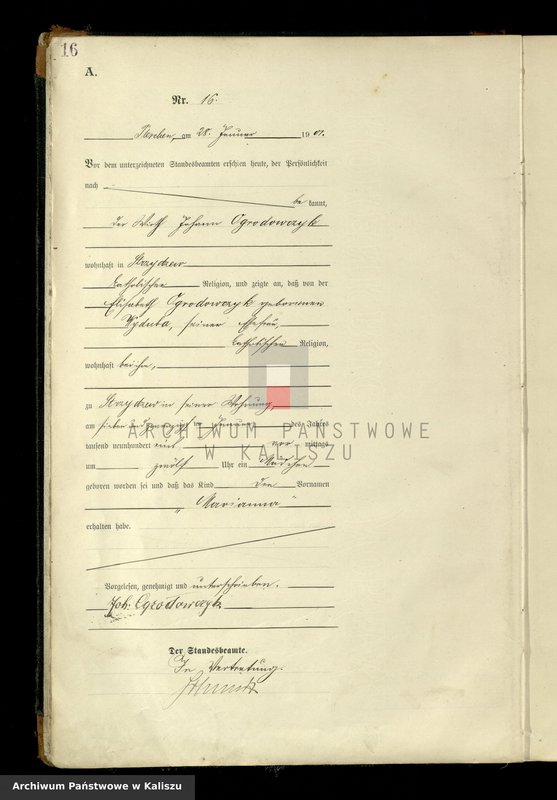 16
A.
Nr. 16.
Pleschen, am 28. Januar 1901.
Vor dem unterzeichneten Standesbeamten erschien heute, der Persönlichkeit
nach
be kannt,
der Wirth Johann Ogrodowczyk
wohnhaft in
katholischer Religion, und zeigte an, daß von der
Elisabeth Ogrodowczyk geborenen
Wyduba, seiner Ehefrau,
katholischer Religion,
wohnhaft bei ihm,
zu in seiner Wohnung,
am Januar des Jahres
tausend neunhundert eins vor mittags
um zwölf Uhr ein Mädchen
geboren worden sei und daß das Kind den Vornamen
„Marianna"
erhalten habe.
Vorgelesen, genehmigt und unterschrieben.
Joh. Ogrodowczyk
Der Standesbeamte.
In Vertretung.
ARCHIWUM PAŃSTWOWE
W KALISZU
Archiwum Państwowe w Kaliszu